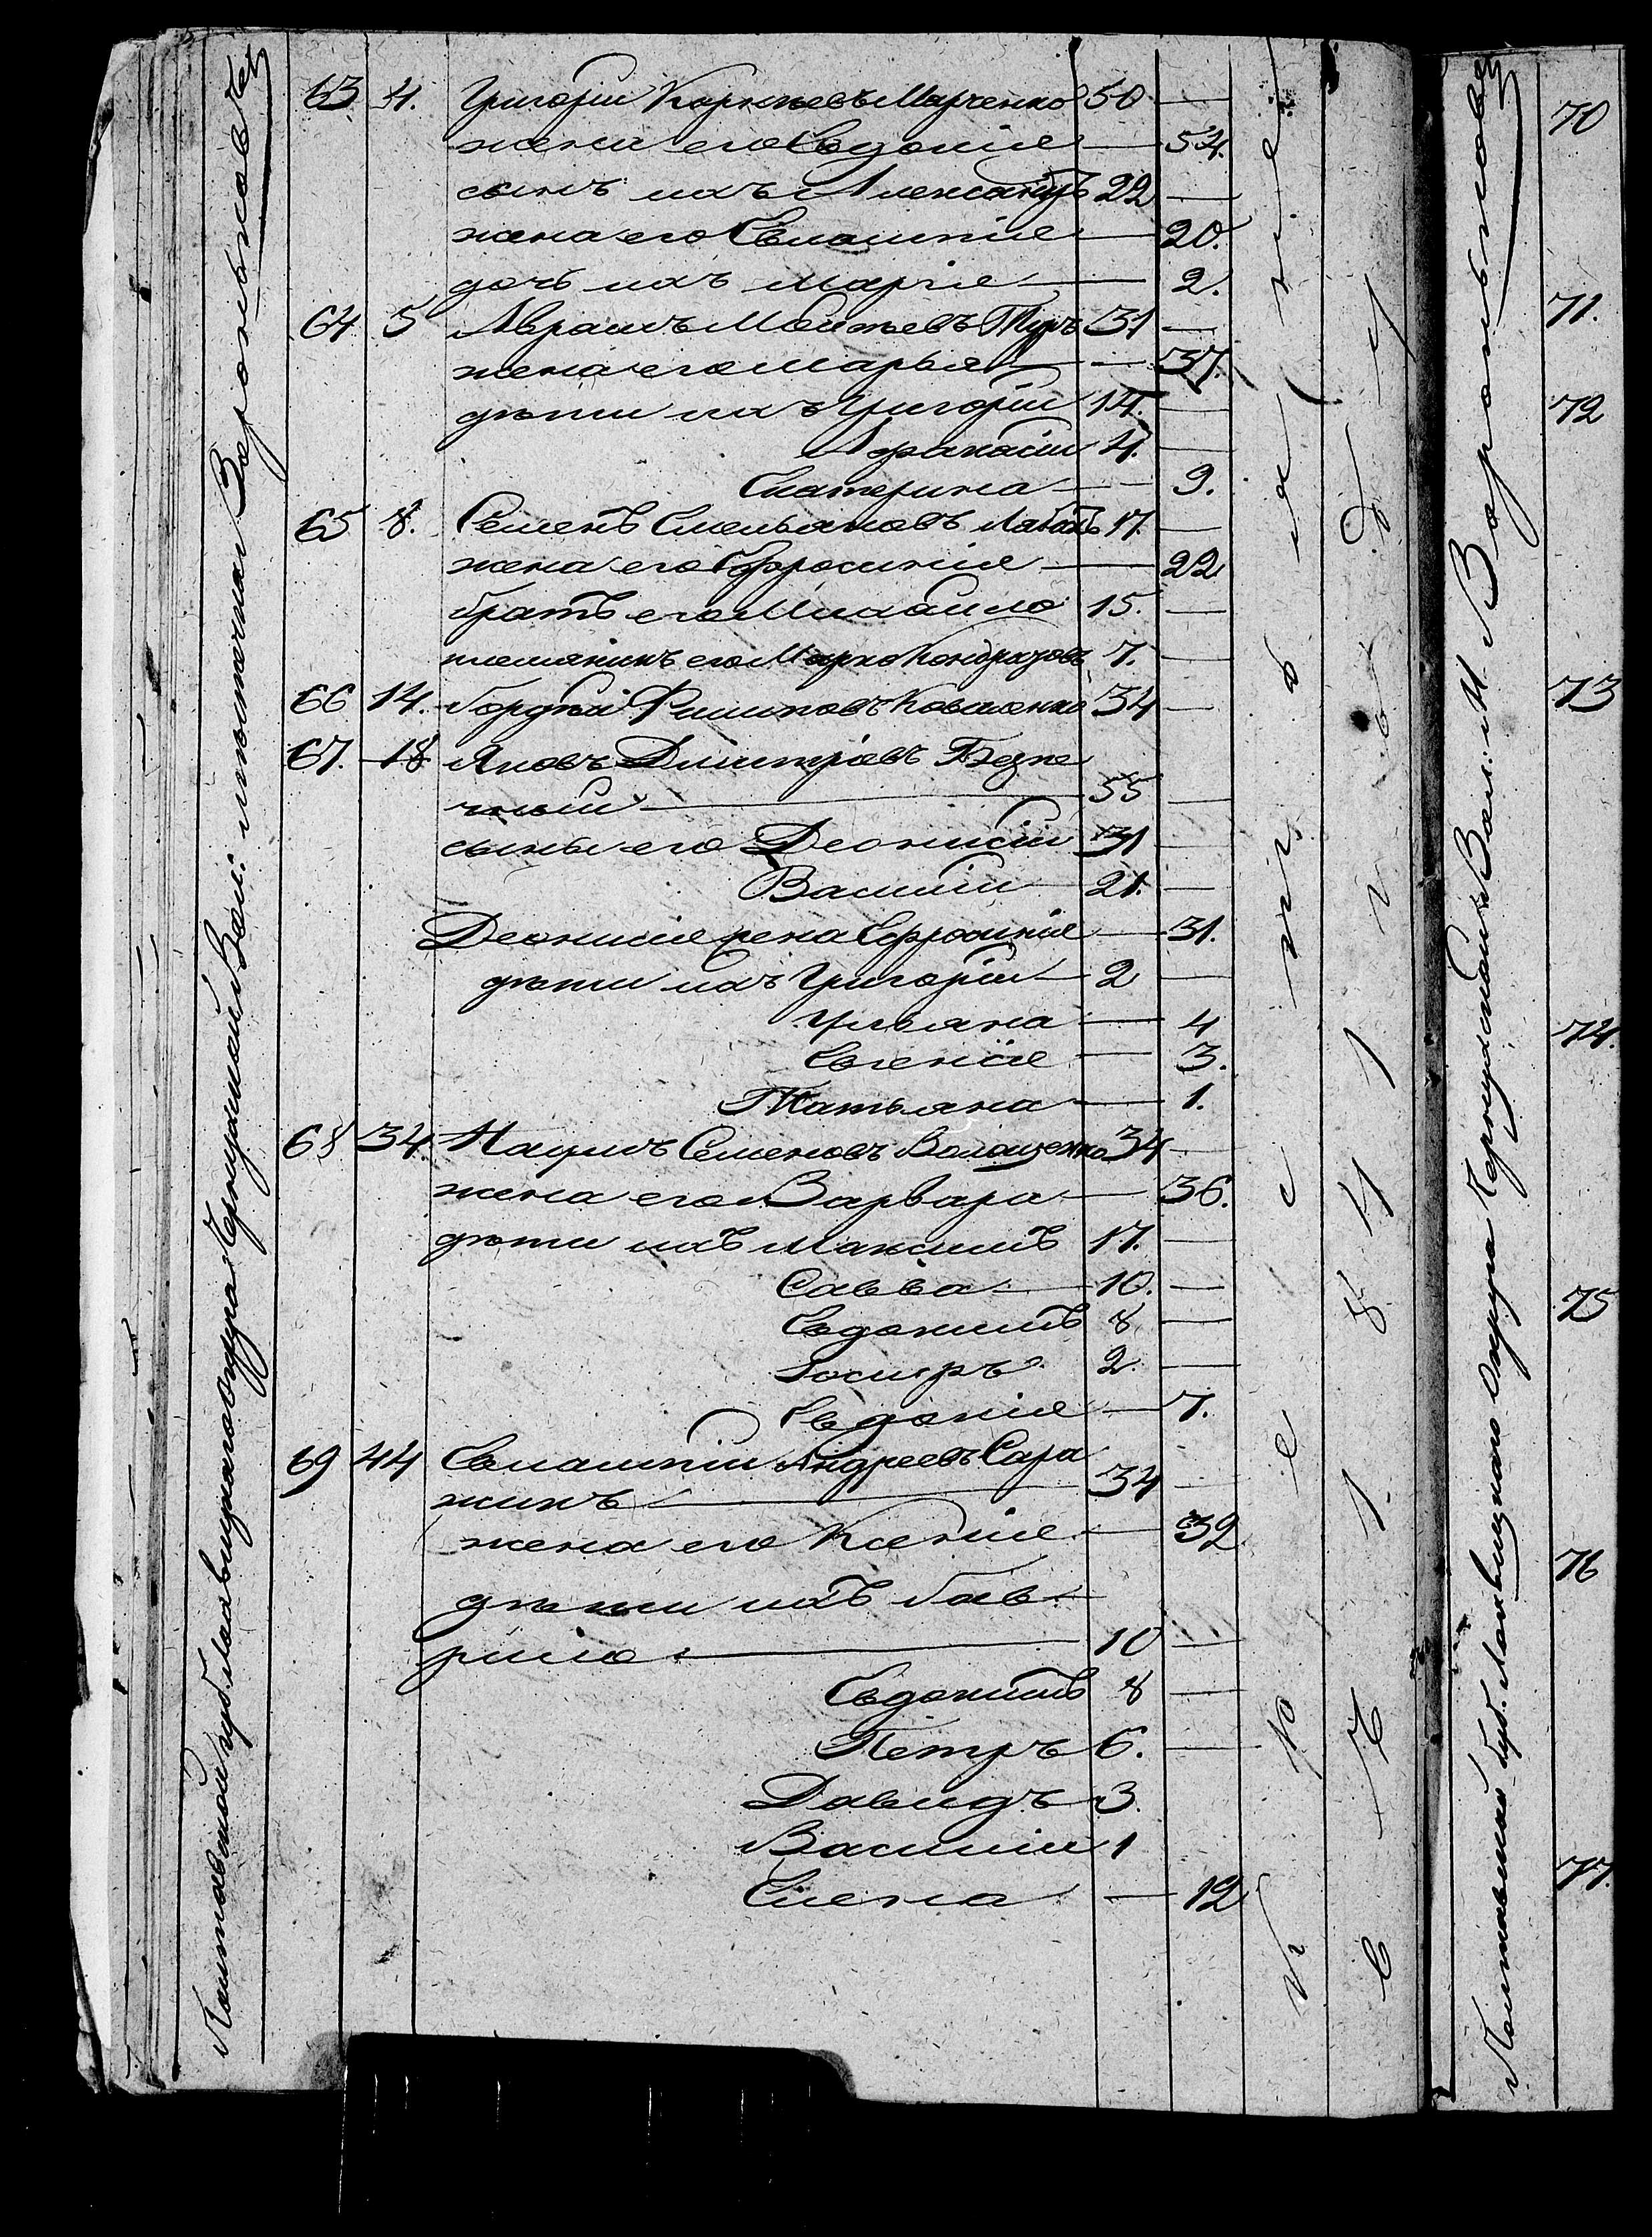 Полтавской губ. Лохвицкаго Округа Чернухинской Вол: мѣстечка Воронькова
63 4. Григорій Корнѣевъ Марченко 50 —
жена его Евдокія — 54.
сынъ ихъ Александръ 22 —
жена его Евлампія — 20.
дочь ихъ Марія — 2.
64 5 Абрамъ Моисѣевъ Туръ 31 —
жена его Марья — 37.
дѣти ихъ Григорій 14. —
Афанасій 4. —
Екатерина — 9.
65 8. Семенъ Емельяновъ 17. —
жена его Ефросинія — 22
братъ его Михайло 15. —
племяникъ его Марко Кондратовъ 7. —
66 14. Гордѣй Филиповъ Коваленко 34 —
67. 18 Яковъ Дмитріевъ Безпе
чный — 55 —
сыны его Деонисій 31 —
Василій 21. —
Деонисія жена Ефросинія — 31.
дѣти ихъ Григорій 2 —
Ульяна — 4
Евгенія — 3.
Татьяна — 1.
68 34. Наумъ Семеновъ Волощенко 34 —
жена его Варвара — 36.
дѣти ихъ Максимъ 17. —
Савва 10. —
Евдокимъ 8 —
2. —
Евдокія — 7.
69 44 Евлампій Андреевъ Сара
жинъ — 34 —
жена его Ксенія — 32
дѣти ихъ Гав-
рило 10 —
Евдокимъ 8 —
Петръ 6. —
Давидъ 3.
Василій 1
Елена — 12
въ 1841 году
Полтавской Губ. Лохвицкаго Округа Чернухской Вол: М. Воронькова
70
71.
72
73
74.
75
76
77.